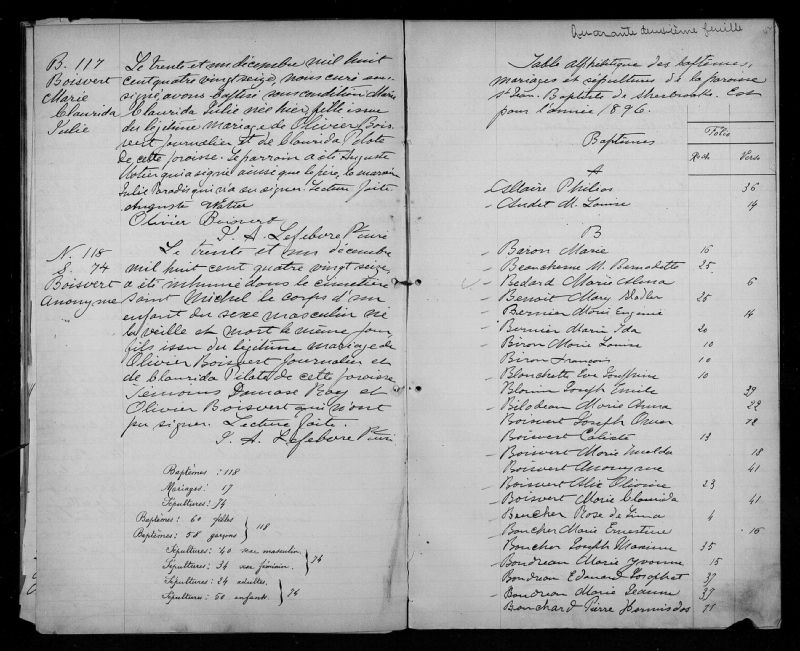 B. 117
Boisvert
Marie
Claurida
Julie
Le trente et un décembre mil huit
cent quatre vingt seize, nous curé sous-
signé avons baptisé sous condition Marie
Claurida Julie née hier, fille issue
du légitime mariage de Olivier Bois-
vert journalier et de Claurida Pilote
de cette paroisse. Le parrain a été Auguste
Watier qui a signé ainsi que le père, la marraine
Julie Paradis qui n'a su signer. Lecture faite
Auguste Watier
Olivier Boisvert
J. A. Lefebvre Ptre curé
N. 118
S. 74
Boisvert
Anonyme
Le trente et un décembre
mil huit cent quatre vingt seize,
a été inhumé dans le cimetière
Saint Michel le corps d'un
enfant du sexe masculin né
la veille et mort le même jour
fils issu du légitime mariage de
Olivier Boisvert journalier et
de Claurida Pilote de cette paroisse
Témoins Damase Roy et
Olivier Boisvert qui n'ont
pu signer. Lecture faite.
J. A. Lefebvre Ptre curé
Baptêmes : 118
Mariages : 17
Sépultures : 74
Baptêmes : 60 filles
Baptêmes : 58 garçons } 118
Sépultures : 40 sexe masculin.
Sépultures : 34 sexe féminin. } 74
Sépultures : 24 adultes.
Sépultures : 50 enfants. } 74
Quarante deuxième feuille
Table alphabétique des baptêmes,
mariages et sépultures de la paroisse
St Jean-Baptiste de Sherbrooke. Est
pour l'année 1896.
Folio
Baptêmes
Recto Verso
A
Allaire Philias 36
Audet M. Louise 14
B
Baron Marie 16
Beauchesne M. Bernadette 25
Bedard Marie Alma 6
Benoit Mary 25
Bernier Marie Eugenie 14
Bernier Marie Ida 20
Biron Marie Louise 10
Biron François 10
Blanchette Eva Josephine 10
Blouin Joseph Emile 39
Bilodeau Marie Anna 22
Boisvert Joseph Omer
Boisvert Calixte 13
Boisvert Marie Imelda 18
Boisvert Anonyme 41
Boisvert Alice 23
Boisvert Marie Claurida 41
Boucher Rose de Lima 4
Boucher Marie Ernestine 16
Boucher Joseph Maxime 35
Boudreau Marie Yvonne 15
Boudreau Edouard Josaphat 39
Boudreau Marie Jeanne 39
Bouchard Pierre Hormisdas